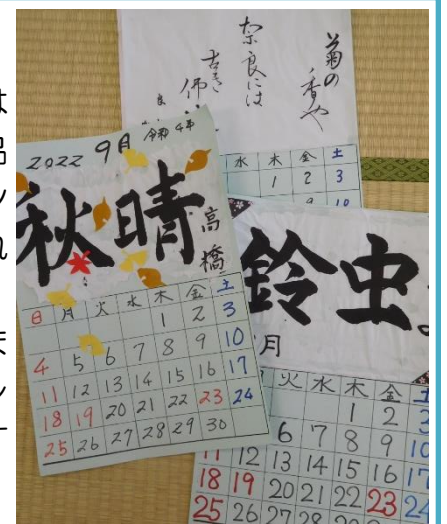 菊の
香や
奈良には
古き
佛
水 木 金 土
1 2 3
9 10
2022 9月 令和4年
秋晴
高橋
日 月 火 水 木 金 土
1 2 3
4 5 6 7 8 9 10
11 12 13 14 15 16 17
18 19 20 21 22 23 24
25 26 27 28 29 30
鈴虫
月
火 水 木 金 土
1 2 3
6 7 8 9 10
11 12 13 14 15 16 17
18 19 20 21 22 23 24
25 26 27 28 29
は
れ
ま